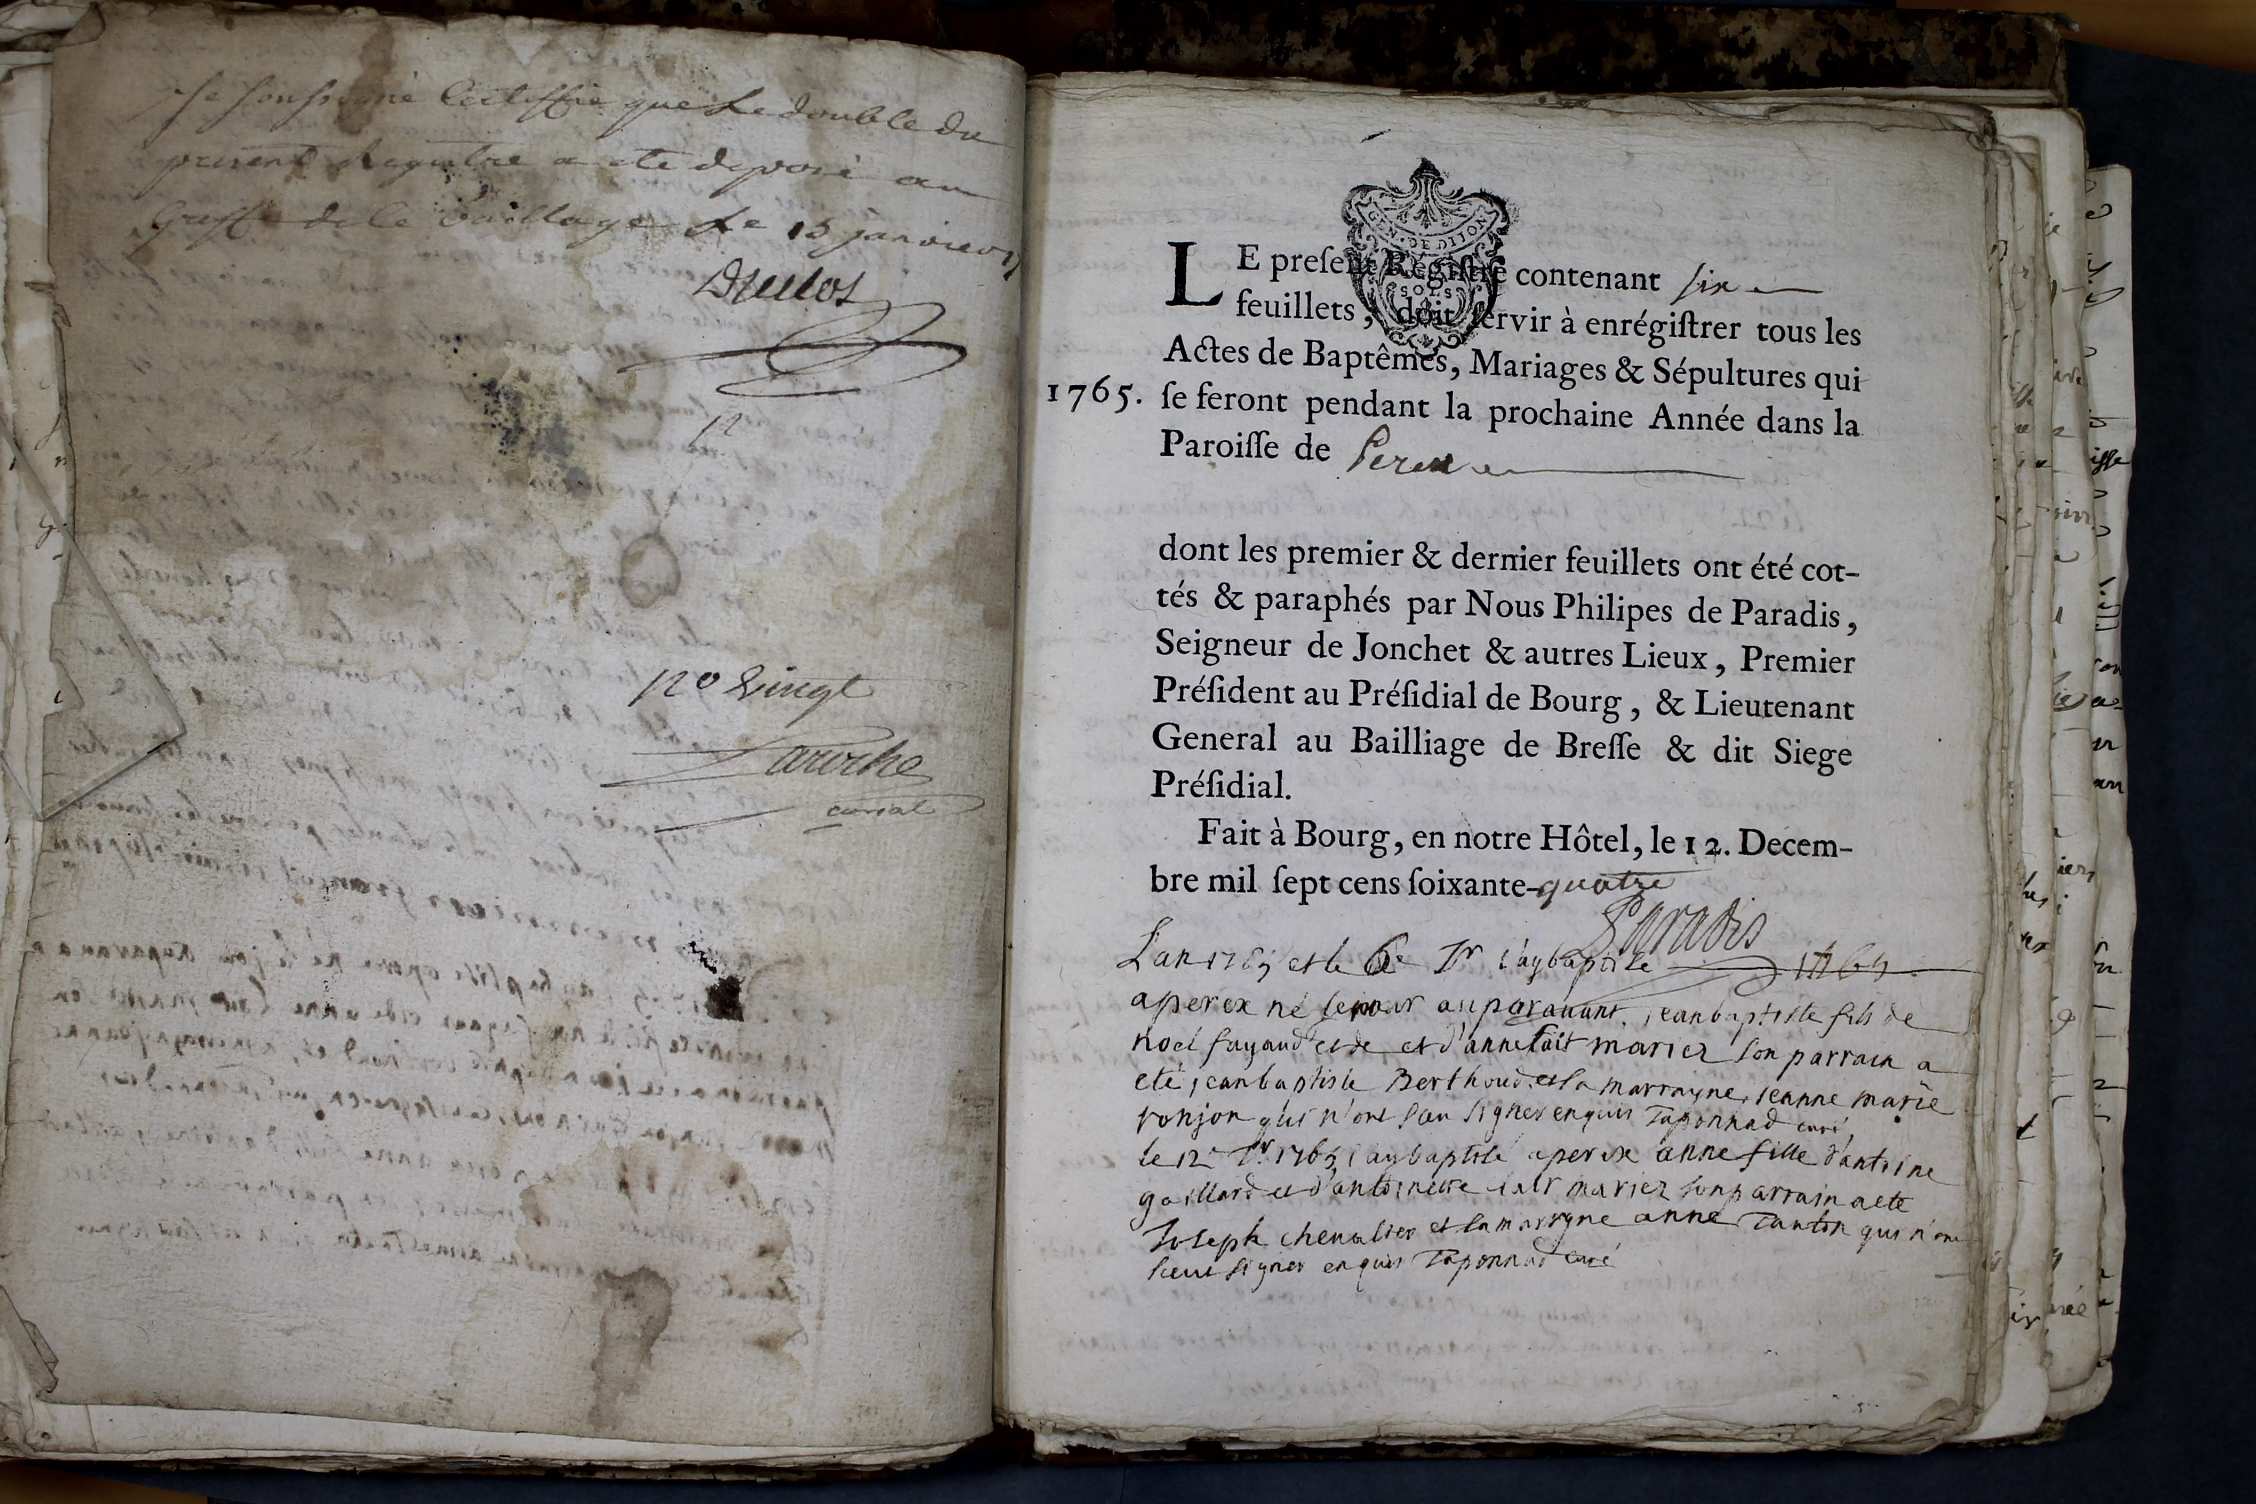 Je soussigné Certiffie que Le double du
present Registre a ete deposé au
Greffe de le Bailliage Le 15 janvier
Duclos
no Vingt
Laroche
curial
GEN. DE DIJON
SOLS
LE preſent Régiſtre contenant ſix
feuillets, doit ſervir à enrégiſtrer tous les
Actes de Baptêmes, Mariages & Sépultures qui
1765. ſe feront pendant la prochaine Année dans la
Paroiſſe de Perex
dont les premier & dernier feuillets ont été cot-
tés & paraphés par Nous Philipes de Paradis,
Seigneur de Jonchet & autres Lieux, Premier
Préſident au Préſidial de Bourg, & Lieutenant
General au Bailliage de Breſſe & dit Siege
Préſidial.
Fait à Bourg, en notre Hôtel, le 12. Decem-
bre mil ſept cens ſoixante-quatre
Paradis
L'an 1765 et le 6e Jr j'ay baptisé
a perex né le jour auparavant, jean baptiste fils de
noel fayaud et de et d'anne fait mariez son parrain a
eté jean baptiste Berthoud et la marrayne jeanne marie
ronjon qui n'ont sçu signer enquis Taponnad curé
le 12e Jr 1765 j'ay baptisé a perex anne fille d'antoine
gaillard et d'antoinette mariez son parrain a eté
Joseph chevalier et la marrayne anne Tanton qui n'ont
sceu signer enquis Taponnad curé